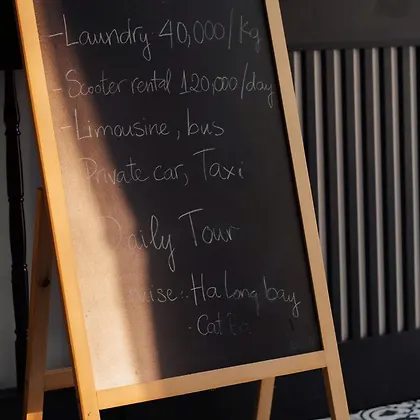 - Laundry: 40,000/kg
- Scooter rental 120,000/day
- Limousine, bus
- Private car, Taxi
Daily Tour
Ha Long bay
Cat Ba